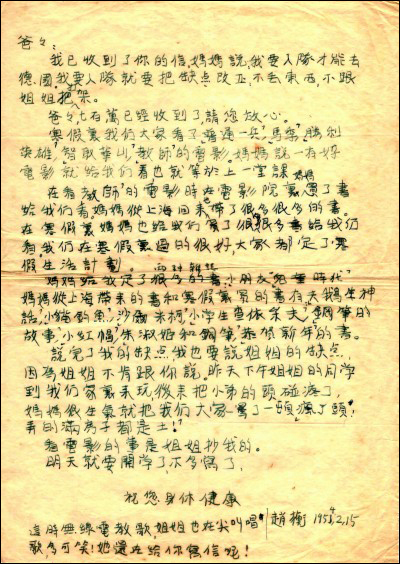 爸々:
我已收到了你的信,媽媽說,我要入隊才能去
德國,我要入隊就要把缺点改正,不丟東西,不跟
姐姐把架。
爸々,七百萬已經收到了請您放心。
寒假裏我們大家看了普通一兵,馬蘭,勝利
英雄,智取華山,教師的電影,媽媽說一有好
電影就給我們看也就等於上一堂課
在看教師的電影時在電影院裏媽媽買了書
給我們看,媽媽從上海回來帶了很多很多的書。
在寒假裏媽媽也給我們買了很多書給我們
看我們在寒假裏過的很好,大家都定了寒
假生活計劃。
媽媽給我定了很多的書,小朋友,兒童時代,
媽媽從上海帶來的書和寒假裏買的書有,天鵝,生神
話,小貓釣魚,小學生查依采夫,鋼筆的
故事,小紅帽,朱淑姐和鋼筆,恭賀新年的書。
說完了我的缺点,我也要說姐姐的缺点,
因為姐姐不肯跟你說,昨天下午姐姐的同学
到我們家裏來玩,後來把小弟的頭碰流了,
媽媽很生氣就把我們大家罵了一頓,
弄的滿房子都是土!
看電影的事是姐姐抄我的。
明天就要開学了不多寫了,
祝您身体健康
趙衡 1954.2.15
這時無線電教歌,姐姐也在尖叫唱
歌多可笑!她還在給你寫信呢!